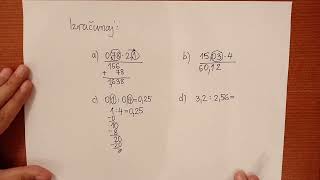 Izračunaj:
a) 0,78 · 2,1
156
+ 78
1638
b) 15,03 · 4
60,12
c) 0,1 : 0,4 = 0,25
1 : 4 = 0,25
-0
10
-8
20
-20
d) 3,2 : 2,56 =